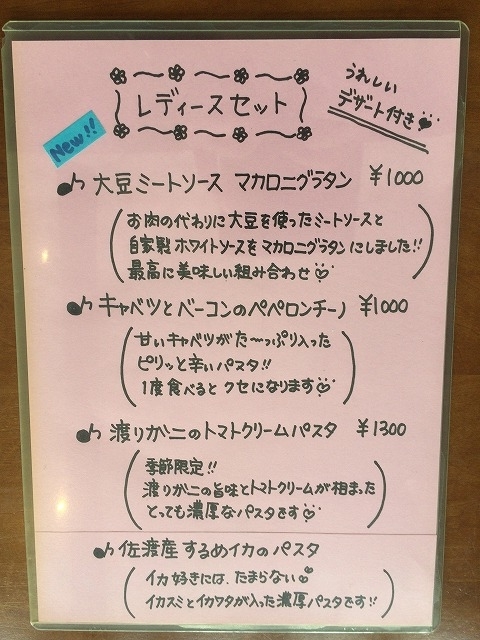 レディースセット
うれしい
デザート付き
New!!
大豆ミートソース マカロニグラタン ¥1000
お肉の代わりに大豆を使ったミートソースと
自家製ホワイトソースをマカロニグラタンにしました!!
最高に美味しい組み合わせ
キャベツとベーコンのペペロンチーノ ¥1000
甘いキャベツがた〜っぷり入った
ピリッと辛いパスタ!!
1度食べるとクセになります
渡りガニのトマトクリームパスタ ¥1300
季節限定!!
渡りガニの旨味とトマトクリームが相まった
とっても濃厚なパスタです
佐渡産するめイカのパスタ
イカ好きには、たまらない
イカスミとイカワタが入った濃厚パスタです!!